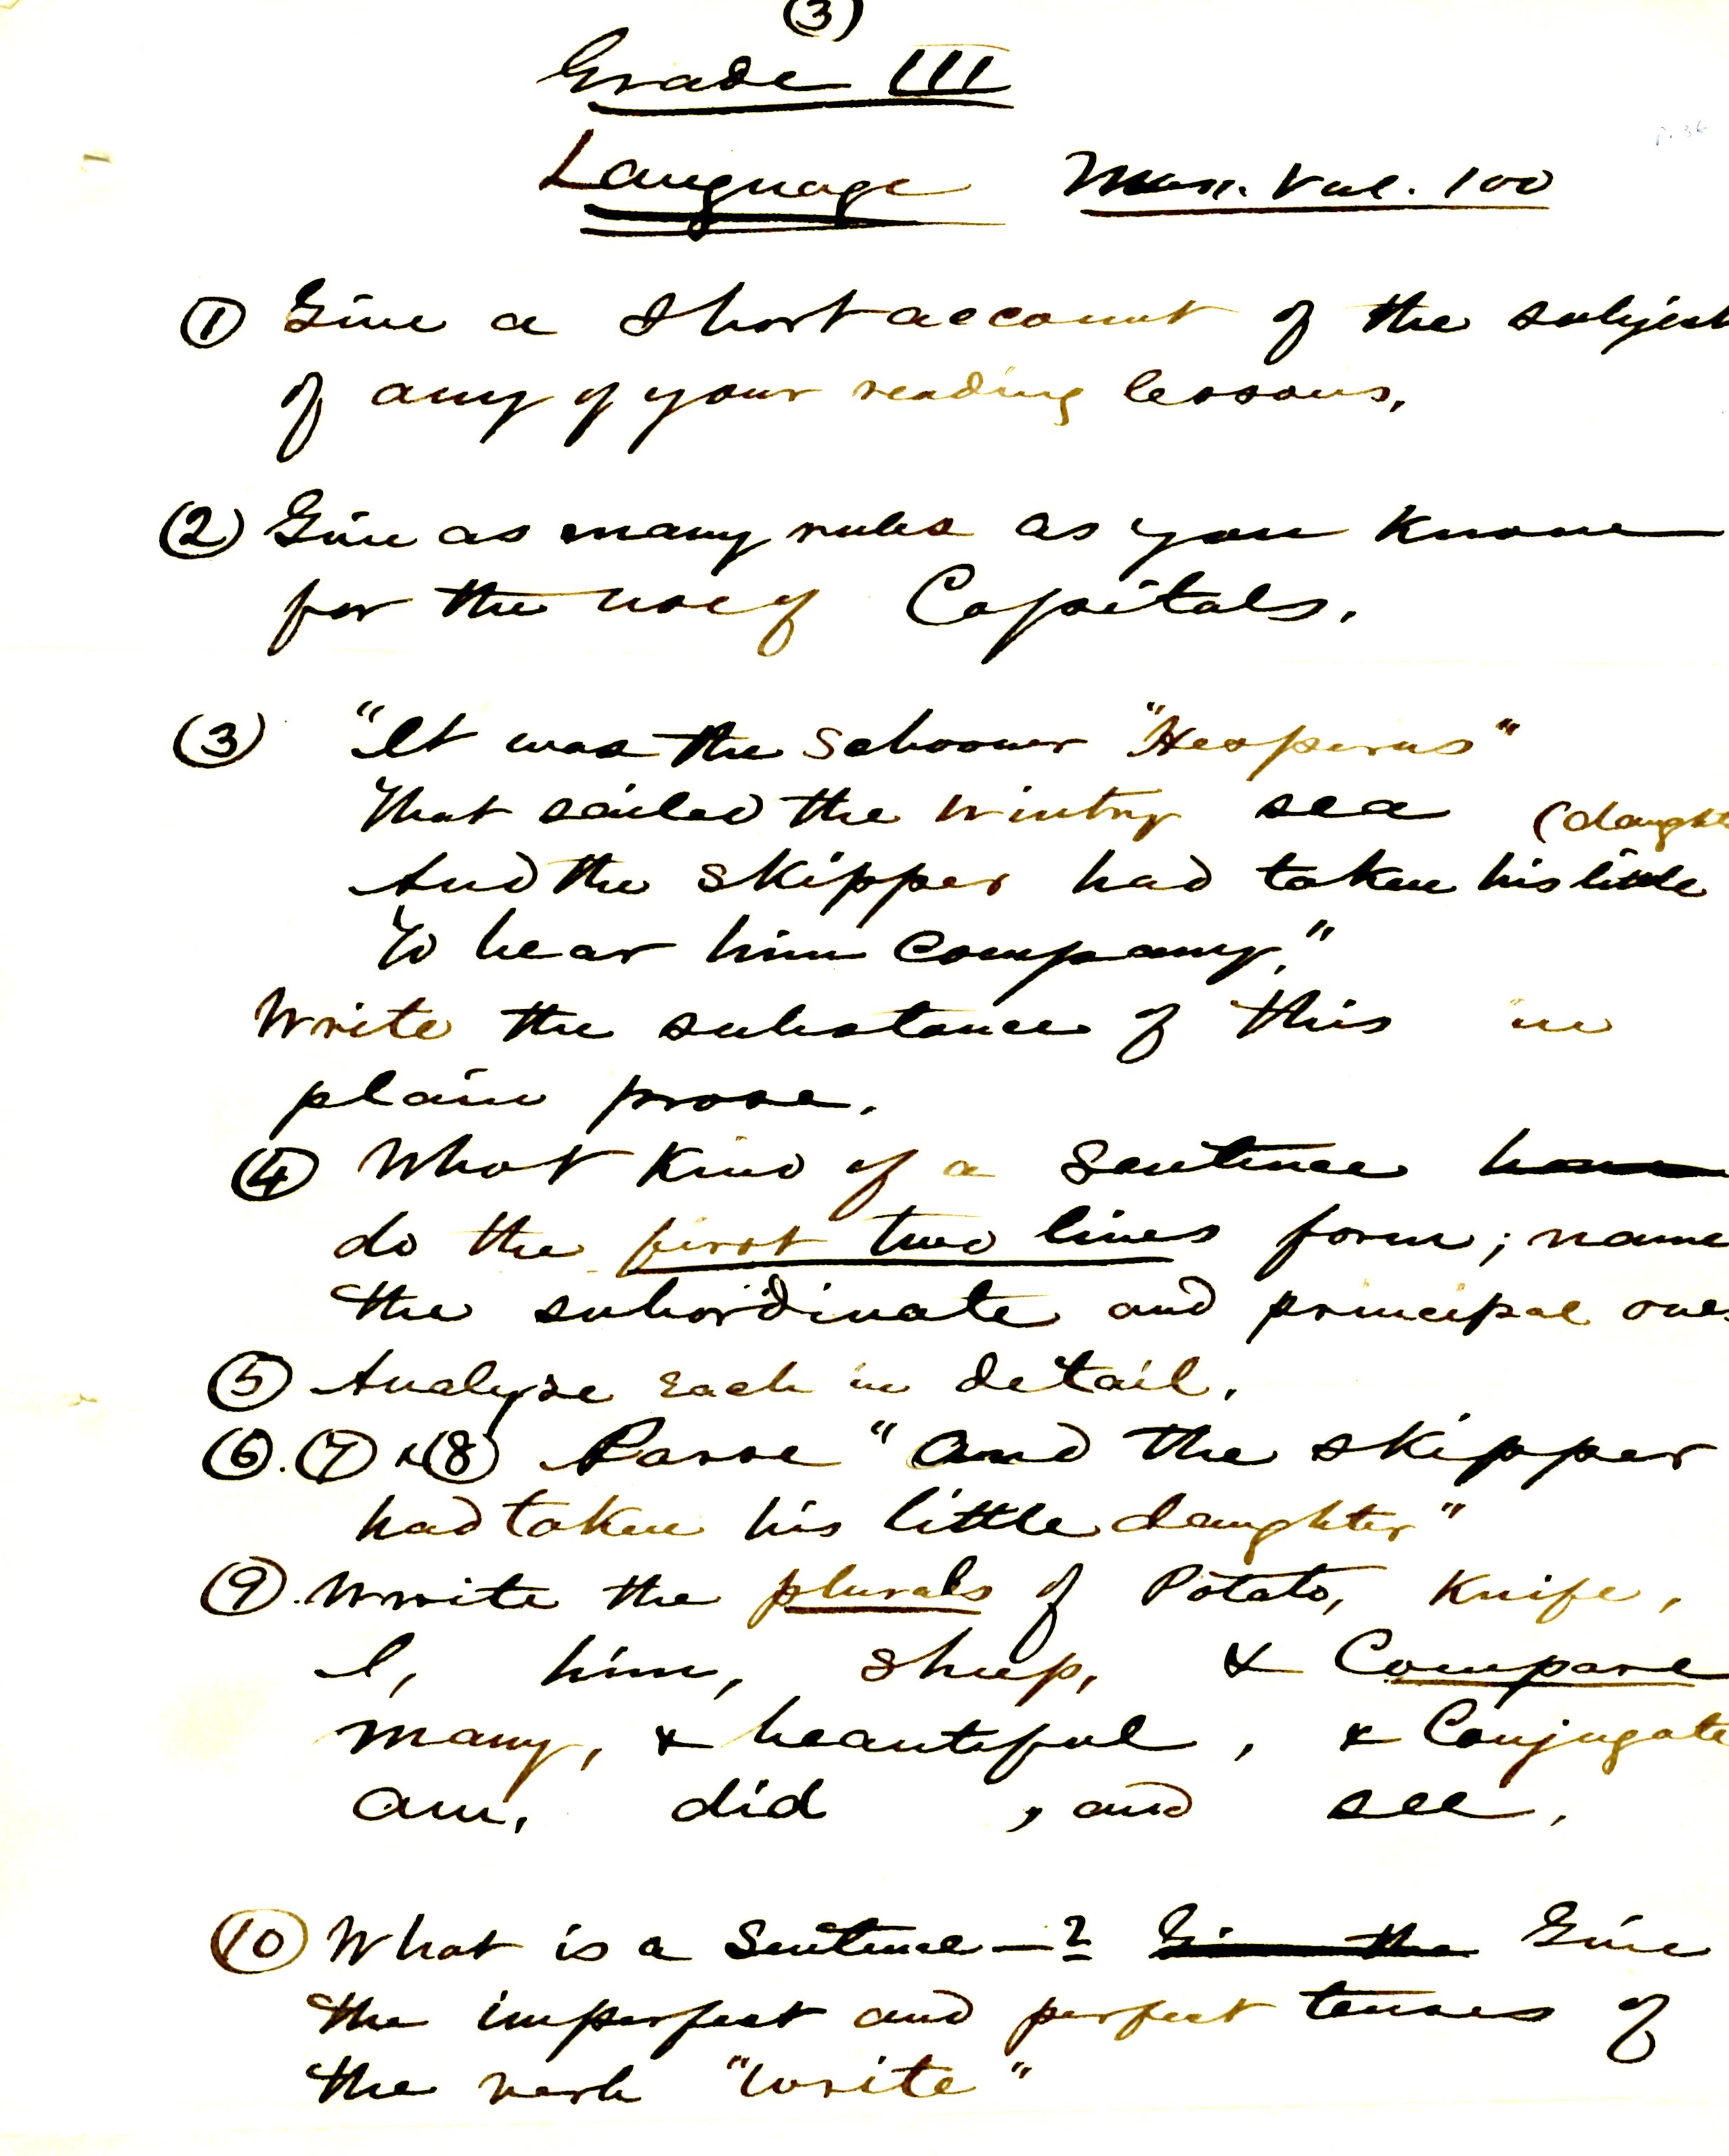 (3)
Grade III
Language Max. Val. 100
p. 36
(1) Give a short account of the subject
of any of your reading lessons.
(2) Give as many rules as you know
for the use of Capitals.
(3) "It was the Schooner "Hesperus"
That sailed the wintry sea (daught
And the skipper had taken his little
To bear him company."
Write the substance of this in
plain prose.
(4) What kind of a sentence
do the first two lines form; name
the subordinate and principal ones
(5) Analyze each in detail.
(6). (7) & (8) Parse "And the skipper
had taken his little daughter"
(9). Write the plurals of Potato, Knife,
I, him, sheep, & Compare
many, & beautiful, & Conjugate
am, did, and see.
(10) What is a Sentence—? Give the Give
the imperfect and perfect tenses of
the verb "write"